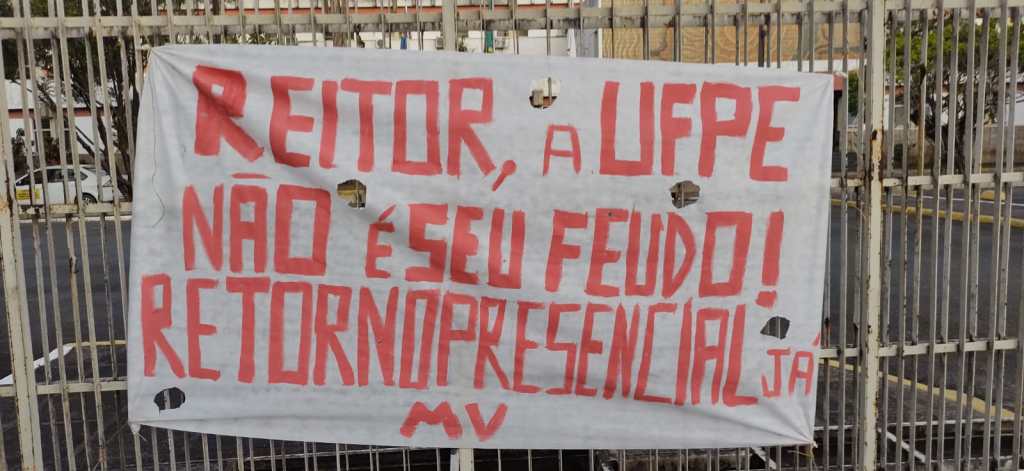 REITOR, A UFPE
NÃO É SEU FEUDO!
RETORNO PRESENCIAL JÁ
MV